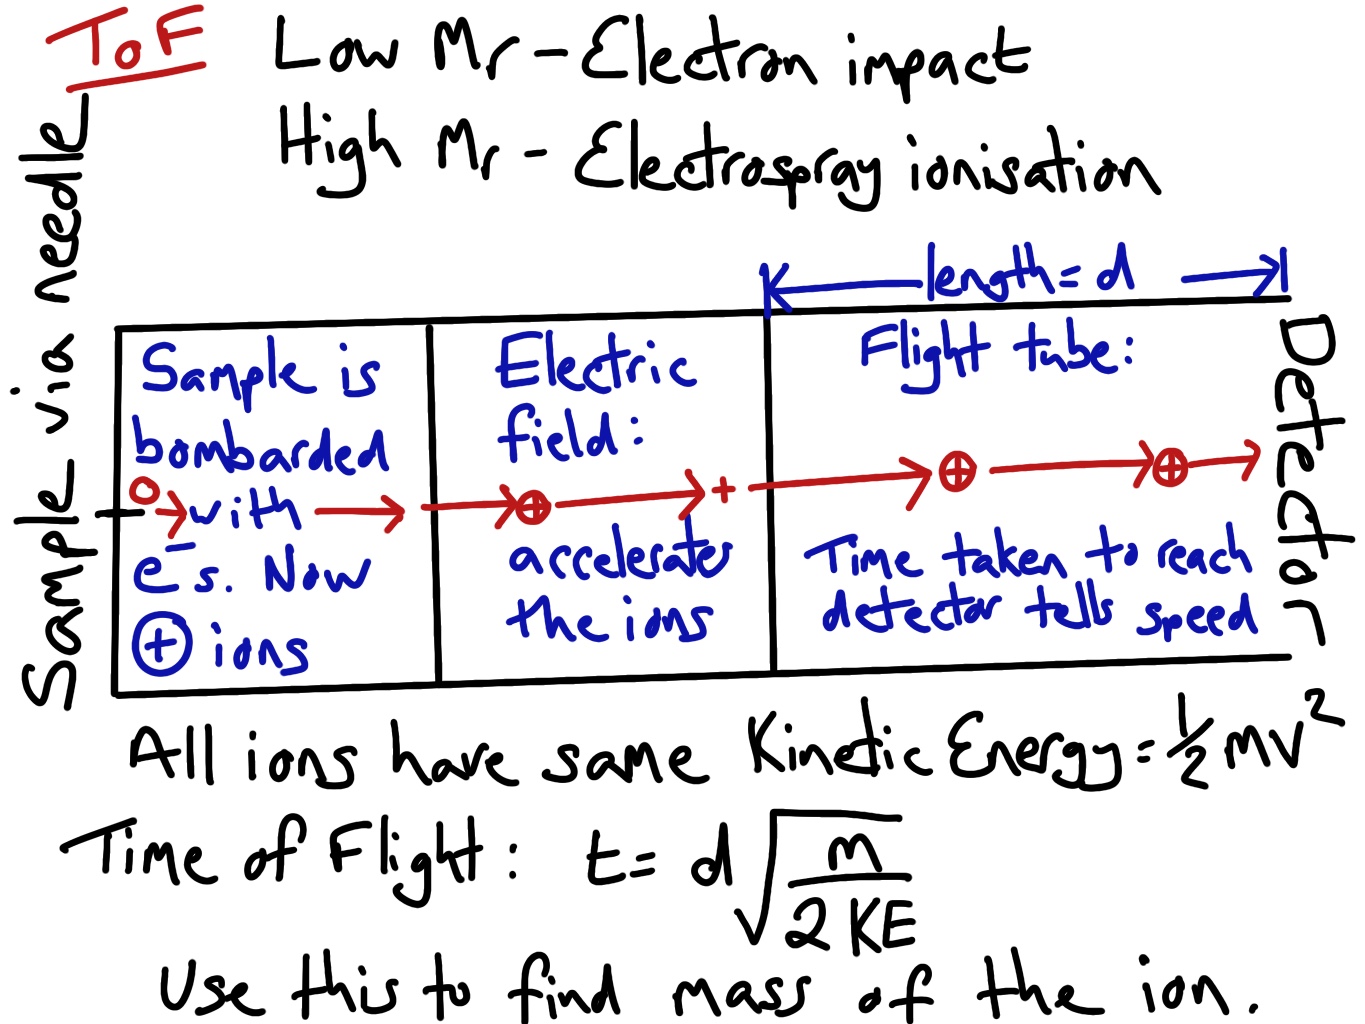 ToF
Low Mr - Electron impact
High Mr - Electrospray ionisation
Sample via needle
length = d
Sample is
bombarded
with
e⁻s. Now
⊕ ions
Electric
field:
⊕ +
accelerates
the ions
Flight tube:
⊕ ⊕
Time taken to reach
detector tells speed
Detector
All ions have same Kinetic Energy = ½mv²
Time of Flight: t = d√(m/2KE)
Use this to find mass of the ion.